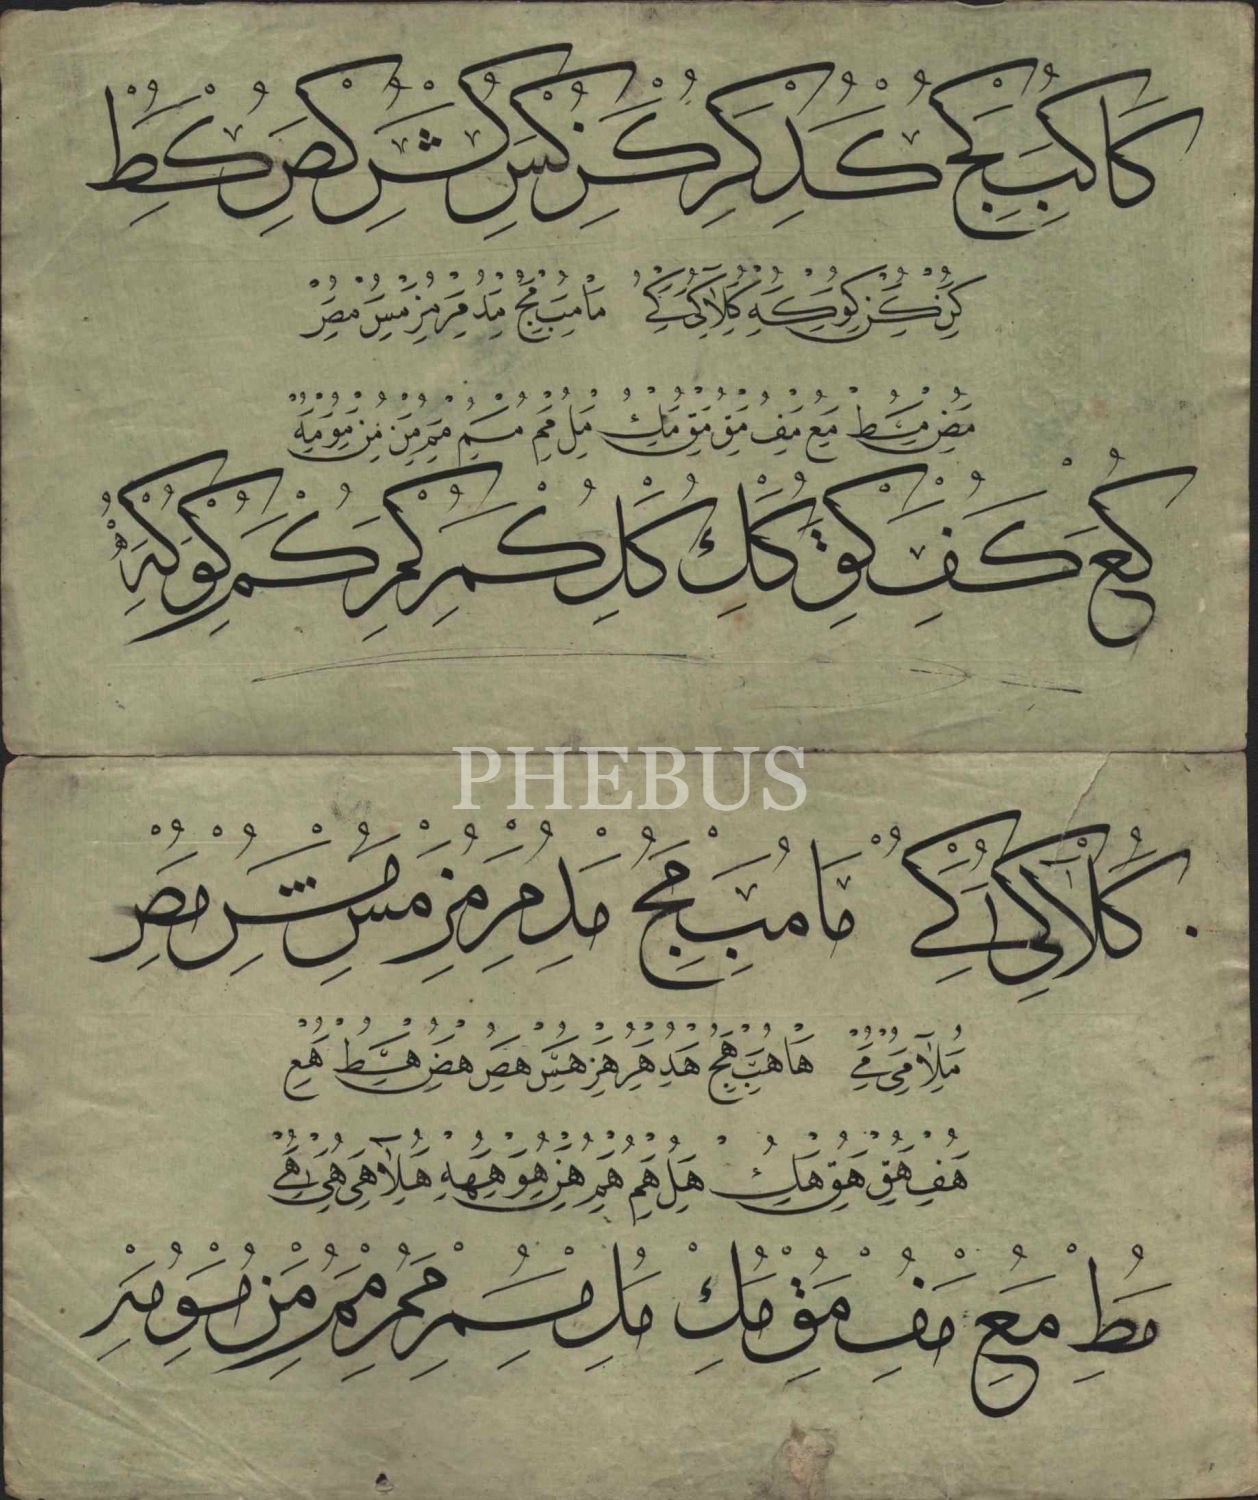 كا كب كج كد كر كز كس كش كص كط
كن كن كو كه كلا كى كے ما مب مج مد مر مز مس مص
مض مط مع مف مق مق مك مل مم مسم مم من من مو مه
كع كف كق كك كل كم كم كم كو كه
PHEBUS
كلا كى كے ما مب مج مد مر مز مس مش مص
ملا مى مے ها هب هج هد هر هز هس هص هض هط هع
هف هق هق هك هل هم هم هن هو هه هلا هى هى هے
مط مع مف مق مك مل مسم مم مم من مو مه